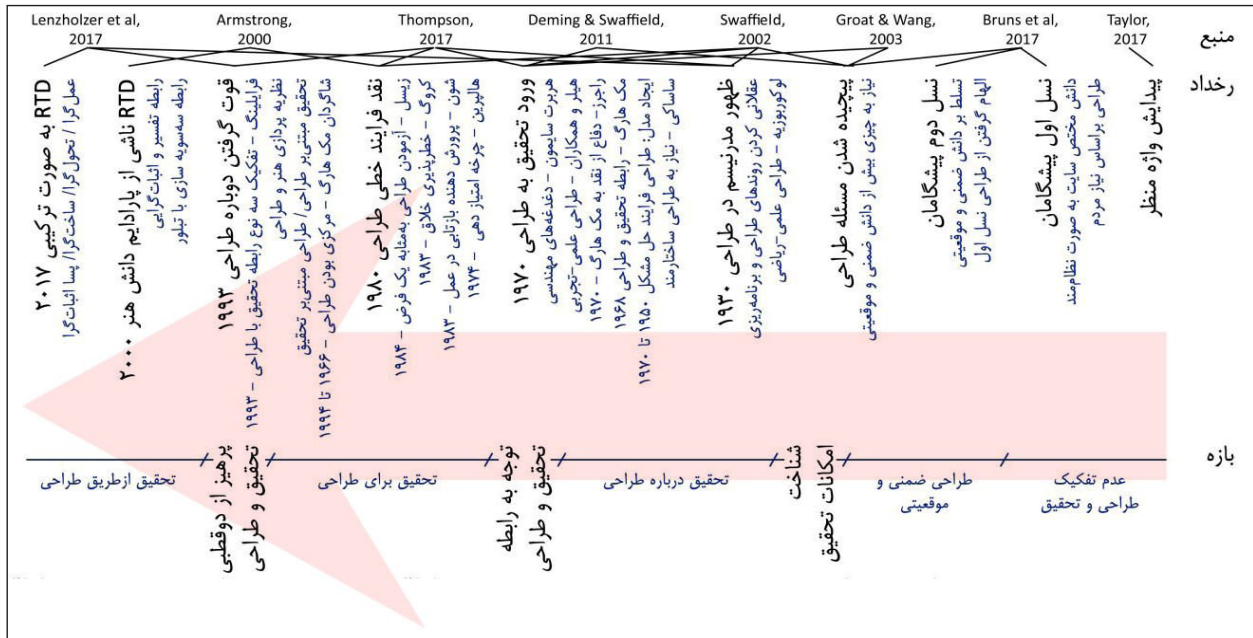 منبع
Taylor, 2017
Bruns et al, 2017
Groat & Wang, 2003
Swaffield, 2002
Deming & Swaffield, 2011
Thompson, 2017
Armstrong, 2000
Lenzholzer et al, 2017
رخداد
پیدایش واژه منظر
نسل اول پیشگامان
دانش مختص سایت به صورت نظام‌مند
طراحی براساس نیاز مردم
نسل دوم پیشگامان
تسلط بر دانش ضمنی و موقعیتی
الهام گرفتن از طراحی نسل اول
پیچیده شدن مسئله طراحی
نیاز به چیزی بیش از دانش ضمنی و موقعیتی
ظهور مدرنیسم در طراحی ۱۹۳۰
عقلانی کردن روندهای طراحی و برنامه‌ریزی
لوکوربوزیه - طراحی علمی-ریاضی
ورود تحقیق به طراحی ۱۹۷۰
هربرت سایمون - دغدغه‌های مهندسی
هیلر و همکاران - طراحی علمی-تجربی
راجرز- دفاع از نقد به مک هارگ - ۱۹۷۰
مک هارگ - رابطه تحقیق و طراحی ۱۹۶۸
ایجاد مدل: طراحی فرایند حل مشکل ۱۹۵۰ تا ۱۹۷۰
ساساکی - نیاز به طراحی ساختارمند
نقد فرایند خطی طراحی ۱۹۸۰
زیسل - ازمودن طراحی به‌مثابه یک فرض - ۱۹۸۴
کروگ - خطرپذیری خلاق - ۱۹۸۳
شون - پرورش دهنده بازتابی در عمل - ۱۹۸۳
هالپرین - چرخه امتیاز دهی - ۱۹۷۴
قوت گرفتن دوباره طراحی ۱۹۹۳
فرایلینگ - تفکیک سه نوع رابطه تحقیق با طراحی - ۱۹۹۳
نظریه پردازی هنر و طراحی
تحقیق مبتنی‌بر طراحی/ طراحی مبتنی‌بر تحقیق
شاگردان مک هارگ - مرکزی بودن طراحی - ۱۹۶۶ تا ۱۹۹۴
RTD ناشی از پارادایم دانش هنر ۲۰۰۰
رابطه تفسیر و اثبات‌گرایی
رابطه سه‌سویه سازی با تبلور
RTD به صورت ترکیبی ۲۰۱۷
عمل‌گرا / تحول‌گرا/ ساخت‌گرا/ پسا اثبات‌گرا
بازه
عدم تفکیک
طراحی و تحقیق
طراحی ضمنی و
موقعیتی
شناخت
امکانات تحقیق
تحقیق درباره طراحی
توجه به رابطه
تحقیق و طراحی
تحقیق برای طراحی
پرهیز از دوقطبی
تحقیق و طراحی
تحقیق ازطریق طراحی